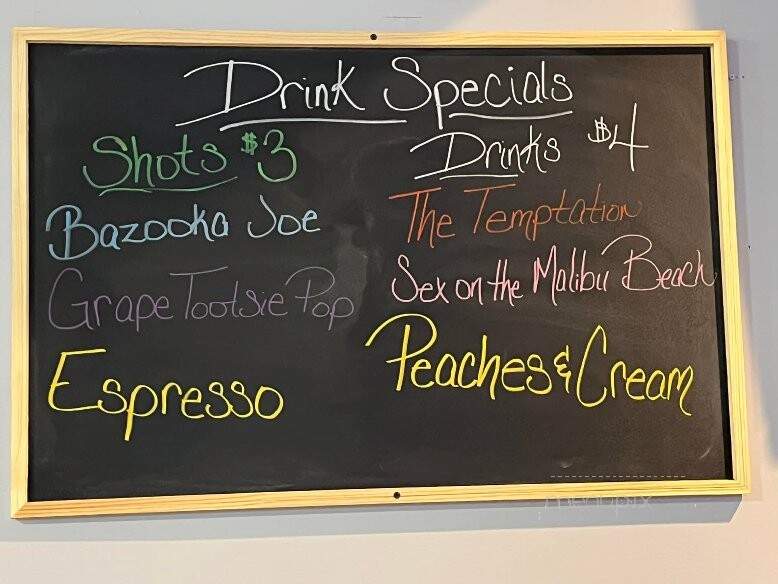 Drink Specials
Shots $3
Bazooka Joe
Grape Tootsie Pop
Espresso
Drinks $4
The Temptation
Sex on the Malibu Beach
Peaches & Cream